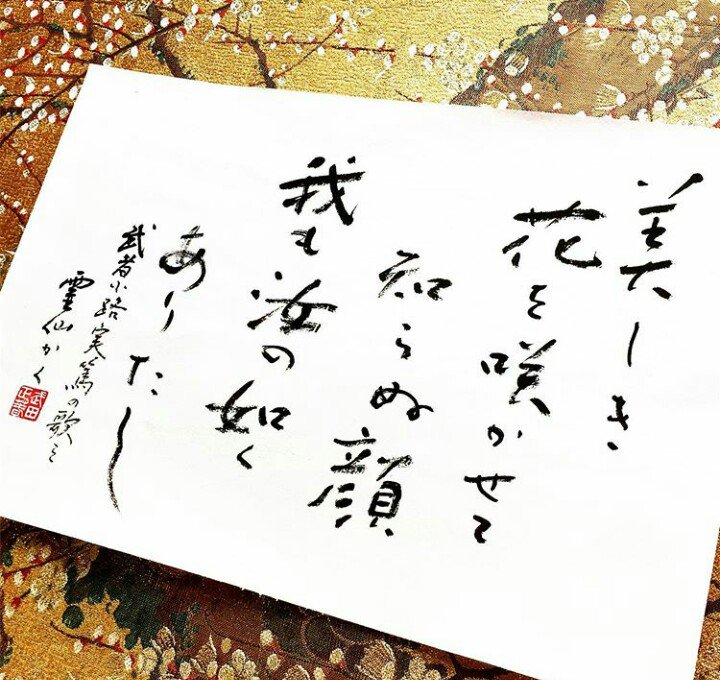 美しき
花を咲かせて
知らぬ顔
我も汝の如く
ありたし
武者小路実篤の歌を
雲仙かく
武田